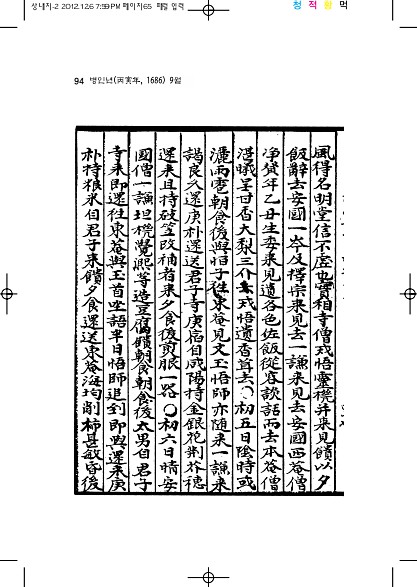 상내지-2 2012.12.6 7:59 PM 페이지65 패컴 입력
청 적 황 먹
94 병인년(丙寅年, 1686) 9월
風得名明堂信不虛也實相寺僧戒悟靈機幷來見饋以夕
飯辭去安國一岑及擇宗來見去一謙來見去安國西菴僧
淨梵年乙丑生委來見遺各色佐飯從容談話而去本菴僧
湛曦呈甘香大梨三介戒悟遺香茸去〇初五日陰時或
灑雨雹朝食後與悟子往東菴見文玉悟師亦隨來一謙來
謁良久還庚朴還送君子寺庚高自咸陽持金銀花荊芥穗
還來且持破笠改補者來夕食後剪服一器〇初六日晴安
國僧一謙坦機贊熙等造豆腐饋朝食朝食後太男自君子
寺來即還往東菴與玉首坐語半日悟師追到即與還來庚
朴持粮米自君子來饋夕食還送東菴海均削柿甚敏昏後